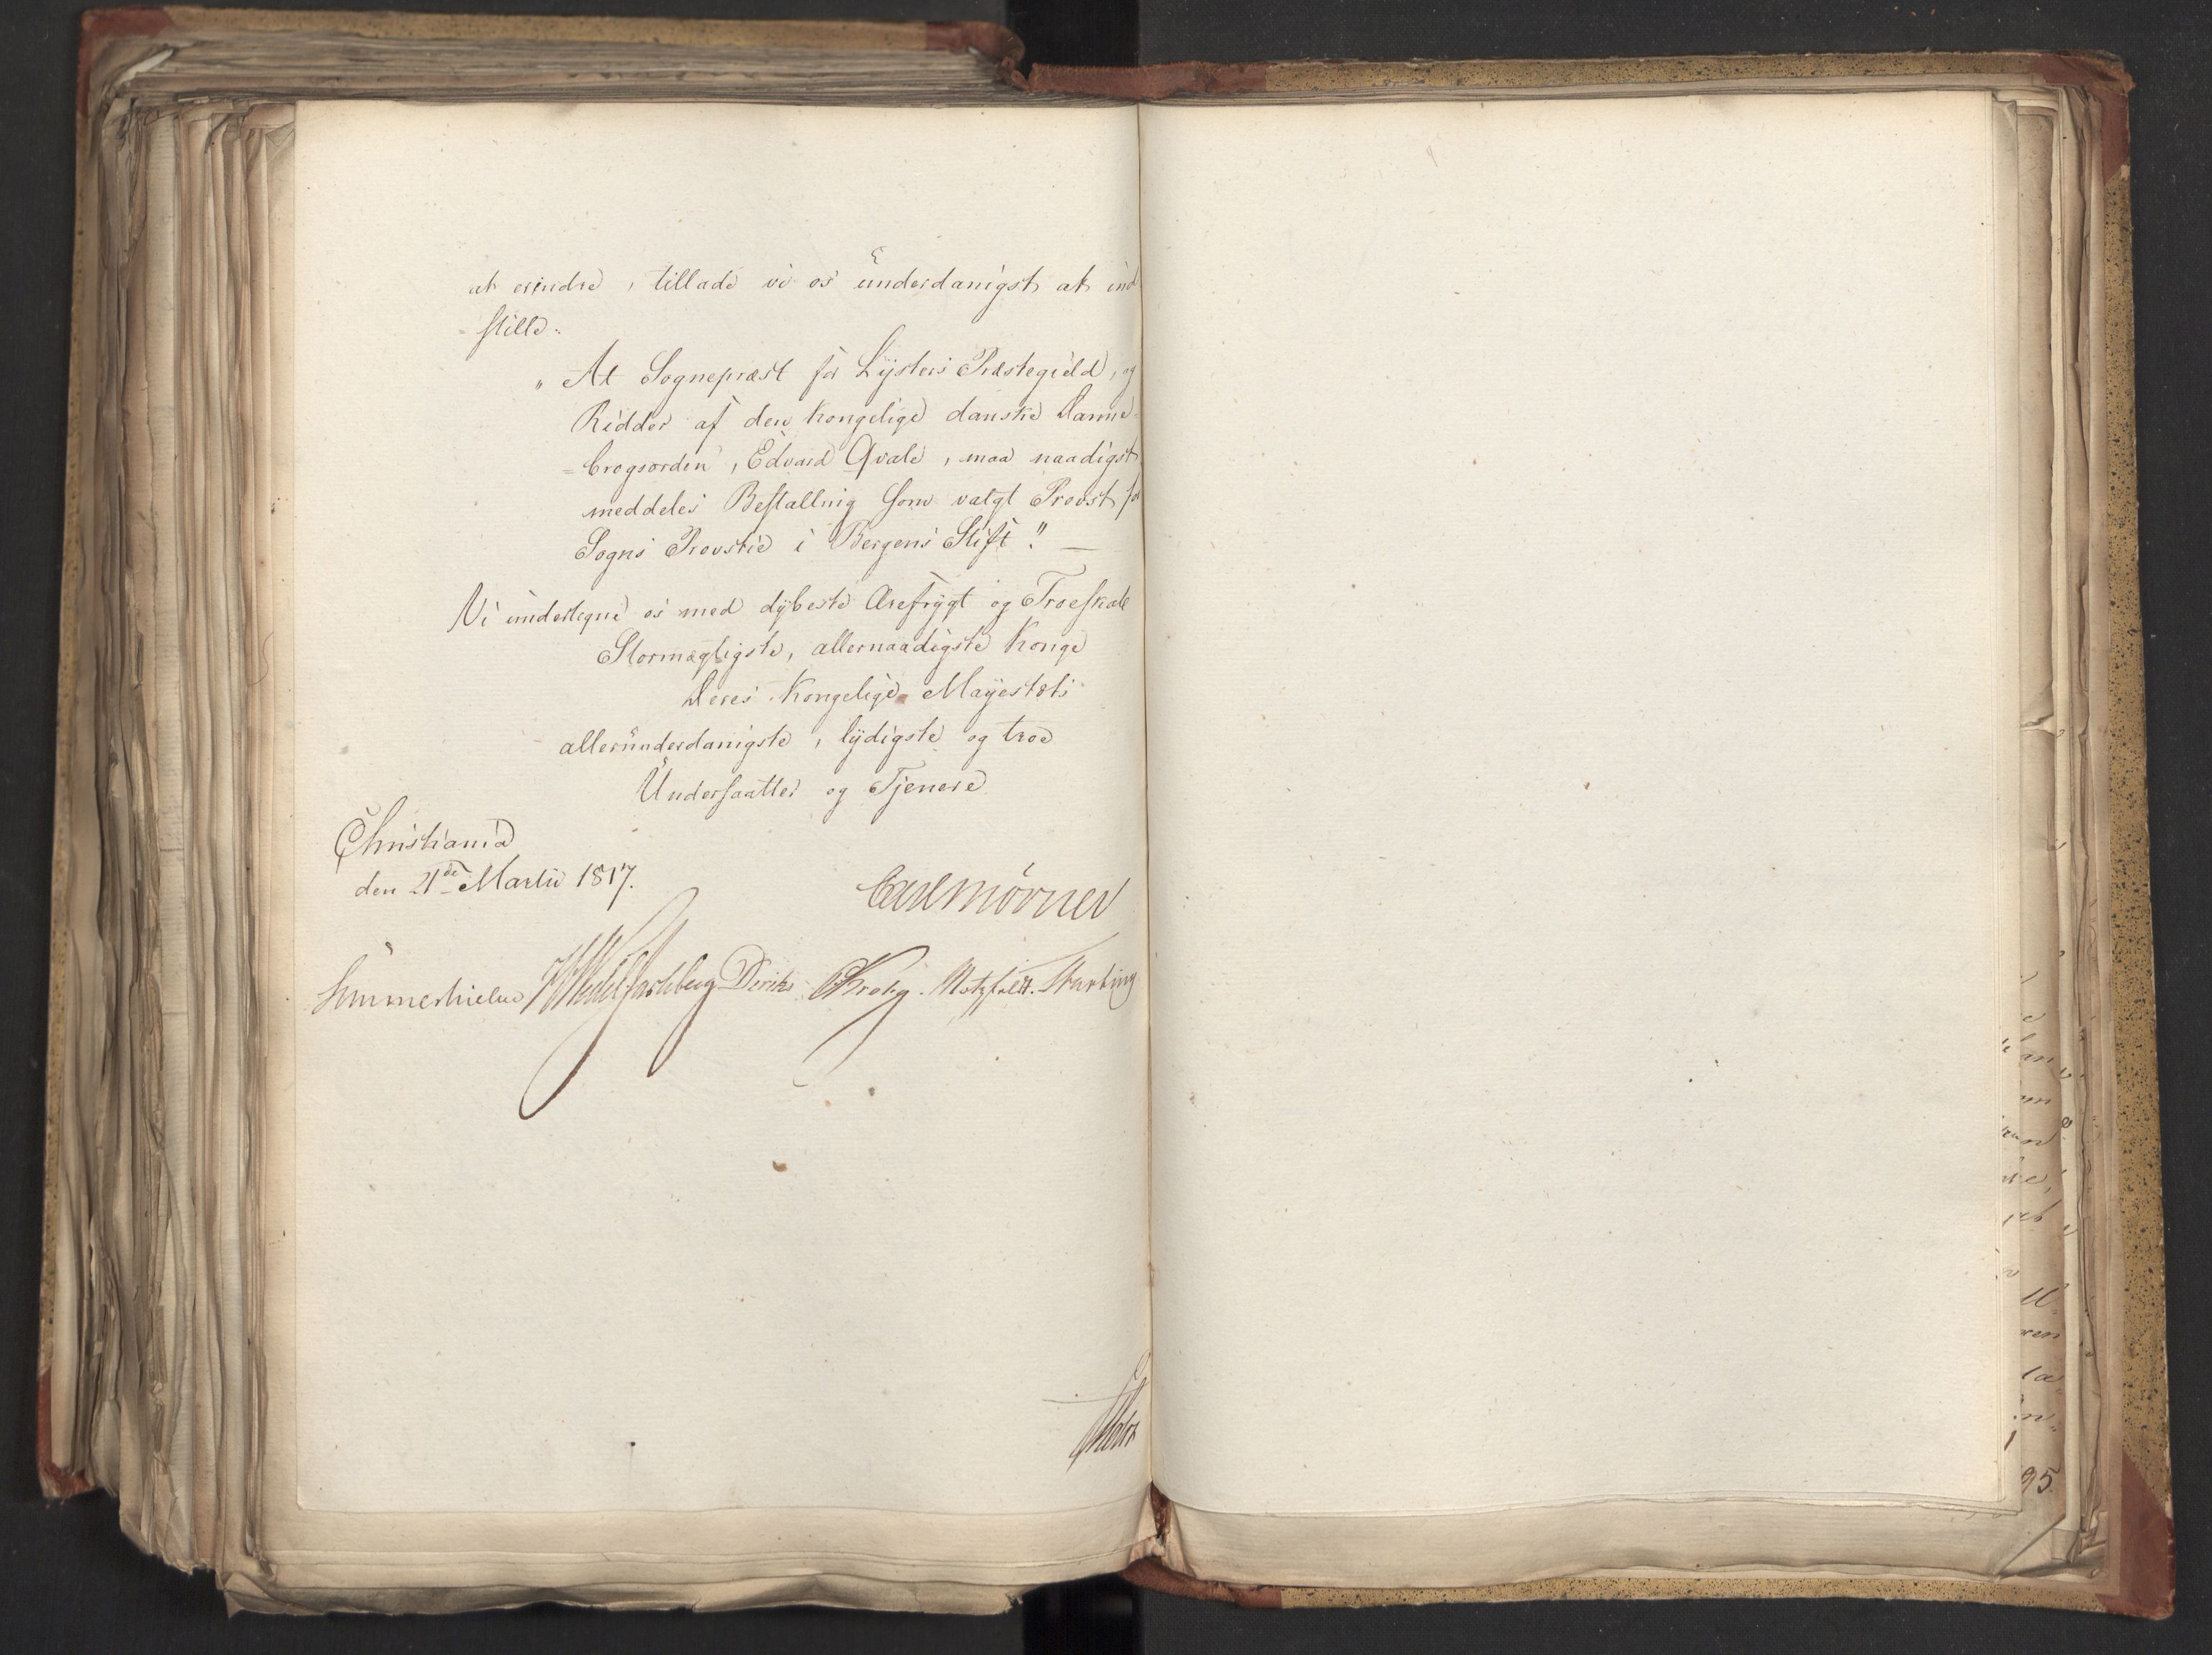 at erindre, tillade vi os underdanigst at ind
=stille:
„At Sognepræst for Lysters Præstegield, og
Ridder af den kongelige danske Danne=
=brogsorden, Edvard Qvale, maa naadigst
meddeles Bestalling som valgt Provst for
Sogns Provstie i Bergens Stift." —
Vi undertegne os med dybeste Ærefrygt og Troeskab
Stormægtigste, allernaadigste Konge
Deres Kongelige Mayestæts
allerunderdanigste, lydigste og troe
Undersaatter og Tjenere
Christiania
den 21de Martii 1817.
Carl Mörner
Sommerhielm HWedel Jarlsberg Diriks CKrohg. Motzfeldt. Harbing